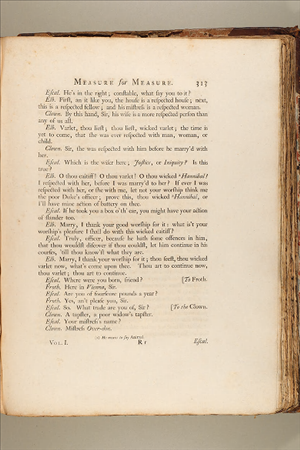 MEASURE for MEASURE. 317
Escal. He's in the right; constable, what say you to it?
Elb. First, an it like you, the house is a respected house; next,
this is a respected fellow; and his mistress is a respected woman.
Clown. By this hand, Sir, his wife is a more respected person than
any of us all.
Elb. Varlet, thou liest; thou liest, wicked varlet; the time is
yet to come, that she was ever respected with man, woman, or
child.
Clown. Sir, she was respected with him before he marry'd with
her.
Escal. Which is the wiser here; Justice, or Iniquity? Is this
true?
Elb. O thou caitiff! O thou varlet! O thou wicked Hannibal!
I respected with her, before I was marry'd to her? If ever I was
respected with her, or she with me, let not your worship think me
the poor Duke's officer; prove this, thou wicked Hannibal, or
I'll have mine action of battery on thee.
Escal. If he took you a box o'th' ear, you might have your action
of slander too.
Elb. Marry, I thank your good worship for it: what is't your
worship's pleasure I shall do with this wicked caitiff?
Escal. Truly, officer, because he hath some offences in him,
that thou wouldst discover if thou couldst, let him continue in his
courses, 'till thou know'st what they are.
Elb. Marry, I thank your worship for it; thou seest, thou wicked
varlet now, what's come upon thee. Thou art to continue now,
thou varlet; thou art to continue.
Escal. Where were you born, friend? [To Froth.
Froth. Here in Vienna, Sir.
Escal. Are you of fourscore pounds a year?
Froth. Yes, an't please you, Sir.
Escal. So. What trade are you of, Sir? [To the Clown.
Clown. A tapster, a poor widow's tapster.
Escal. Your mistress's name?
Clown. Mistress Over-don.
VOL. I. R r Escal.